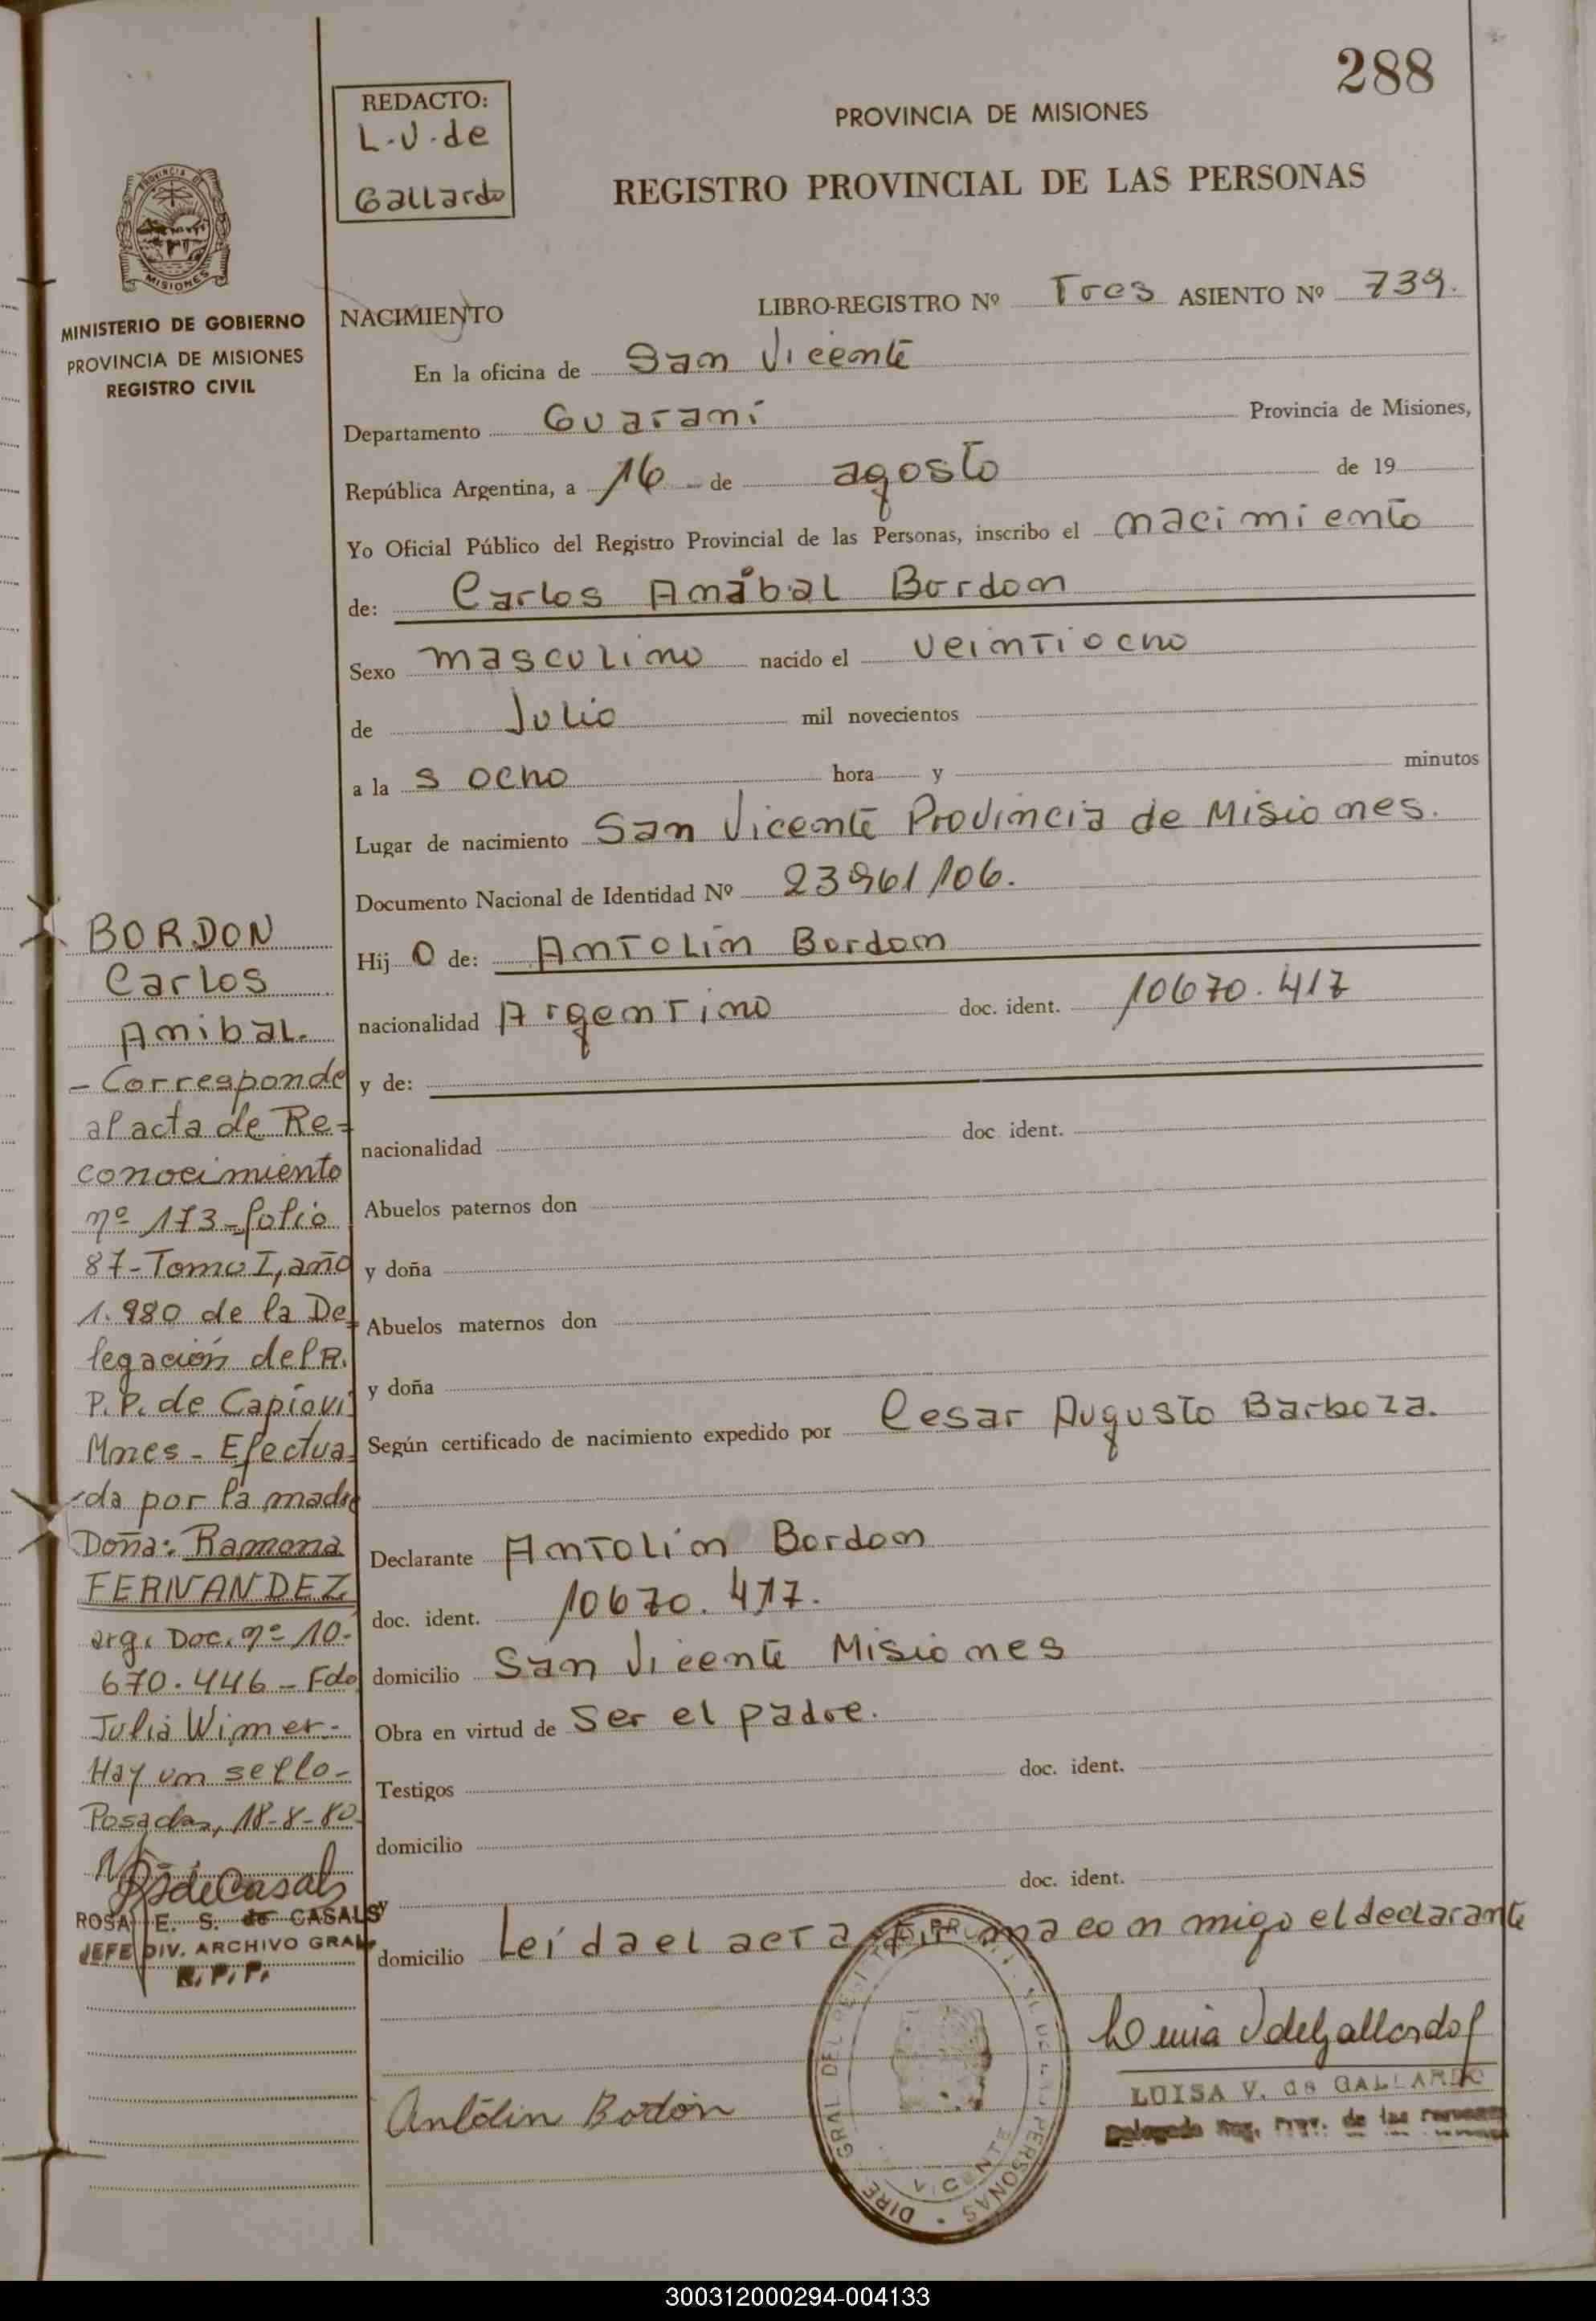 288
REDACTO:
L.V. de
Gallardo
PROVINCIA DE MISIONES
REGISTRO PROVINCIAL DE LAS PERSONAS
PROVINCIA DE
MISIONES
MINISTERIO DE GOBIERNO
PROVINCIA DE MISIONES
REGISTRO CIVIL
NACIMIENTO LIBRO-REGISTRO Nº Tres ASIENTO Nº 739.
En la oficina de San Vicente
Departamento Guaraní Provincia de Misiones,
República Argentina, a 16 de agosto de 19
Yo Oficial Público del Registro Provincial de las Personas, inscribo el nacimiento
de: Carlos Anibal Bordon
Sexo masculino nacido el veintiocho
de Julio mil novecientos
a la s ocho hora y minutos
Lugar de nacimiento San Vicente Provincia de Misiones.
Documento Nacional de Identidad Nº 23961106.
Hij o de: Antolin Bordon
nacionalidad Argentino doc. ident. 10670.417
y de:
nacionalidad doc. ident.
Abuelos paternos don
y doña
Abuelos maternos don
y doña
Según certificado de nacimiento expedido por Cesar Augusto Barboza.
Declarante Antolin Bordon
doc. ident. 10670.417.
domicilio San Vicente Misiones
Obra en virtud de Ser el padre.
Testigos doc. ident.
domicilio
y doc. ident.
domicilio Leida el acta firma con migo el declarante
BORDON
Carlos
Anibal.
- Corresponde
al acta de Re-
conocimiento
nº 173 - folio
87 - Tomo I, año
1.980 de la De-
legación del R.
P.P. de Capioví
Mnes - Efectua-
da por la madre
Doña: Ramona
FERNANDEZ
arg. Doc. nº 10.
670.446 - Fdo
Julia Wimer -
Hay un sello -
Posadas, 18-8-80
ROSA E. S. de CASALS
JEFE DIV. ARCHIVO GRAL
R.P.P.
Antólin Bordón
LUISA V. de GALLARDO
Delegada Reg. Prov. de las Personas
DIRE GRAL DEL PERSONAS
VICENTE
300312000294-004133